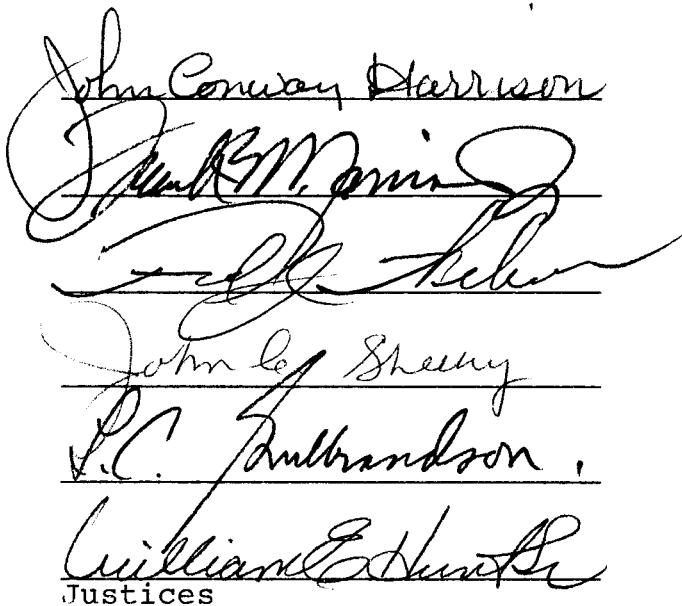 John Conway Harrison
Frank B. Morrison
Fred J. Weber
John C. Sheehy
L.C. Gulbrandson.
William E. Hunt Sr
Justices